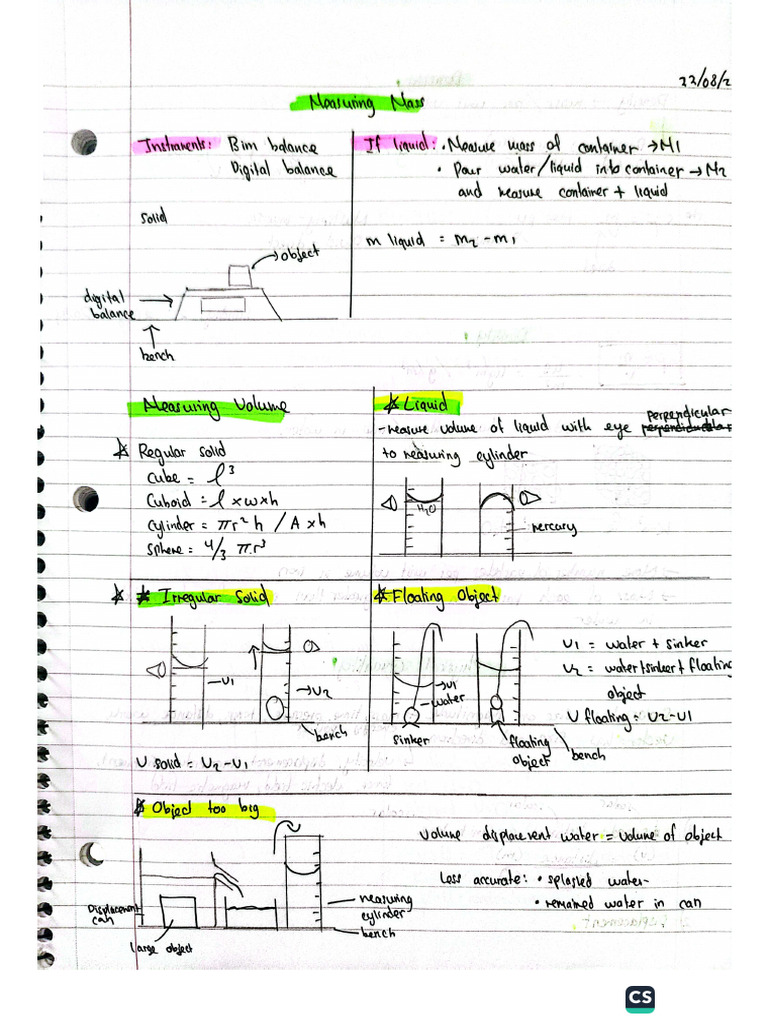 22/08/2
Measuring Mass
Instruments: Bim balance
Digital balance
solid
object
digital
balance
bench
If liquid: • Measure mass of container → M1
• Pour water/liquid into container → M2
and measure container + liquid
m liquid = m2 - m1
Measuring Volume
☆ Regular solid
Cube = l³
Cuboid = l x w x h
Cylinder = πr²h / A x h
Sphere = 4/3 πr³
☆ Liquid
- measure volume of liquid with eye perpendicular
to measuring cylinder
H2O
mercury
☆ Irregular Solid
V1
V2
bench
V solid = V2 - V1
☆ Floating Object
V1
water
sinker
floating
object
bench
V1 = water + sinker
V2 = water + sinker + floating
object
V floating = V2 - V1
☆ Object too big
Displacement
can
large object
measuring
cylinder
bench
Volume displacement water = volume of object
Less accurate: • splashed water
• remained water in can
CS